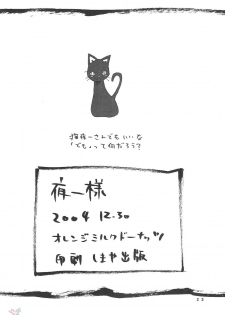 猫夜一さんでもいいな
「でも」って何だろう?
夜一様
2004 12.30
オレンジミルクドーナッツ
印刷 しまや出版